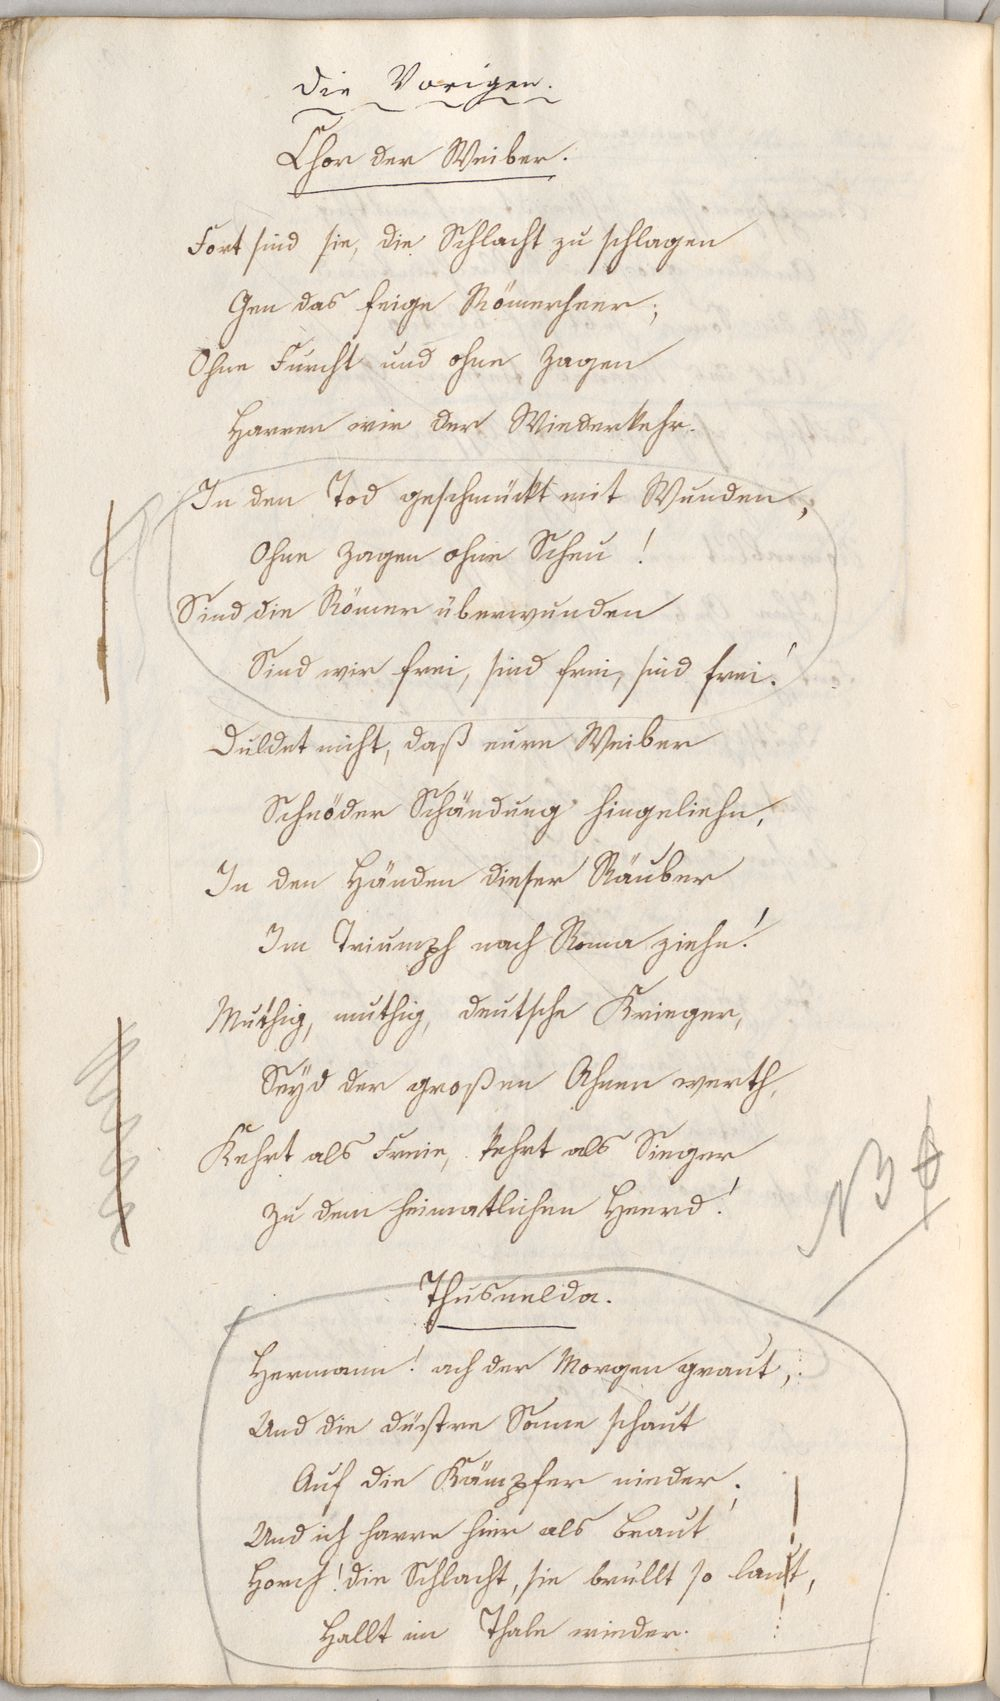 Die Vorigen.
Chor der Weiber.
Fort sind sie, die Schlacht zu schlagen
Gen das feige Römerheer;
Ohne Furcht und ohne Zagen
Harren wir der Wiederkehr.
In den Tod geschmückt mit Wunden,
Ohne Zagen ohne Scheu!
Sind die Römer überwunden
Sind wir frei, sind frei, sind frei!
Duldet nicht, daß eure Weiber
Schnöder Schändung hingeliehn,
In den Händen dieser Räuber
Im Triumph nach Roma ziehn!
Muthig, muthig, deutsche Krieger,
Seyd der großen Ahnen werth,
Kehrt als Freie, kehrt als Sieger
Zu dem heimatlichen Heerd!
Thusnelda.
Hermann! ach der Morgen graut,
Und die düstre Sonne schaut
Auf die Kämpfer nieder.
Und ich harre hier als Braut!
Horch! die Schlacht, sie brüllt so laut,
Hallt im Thale wieder.